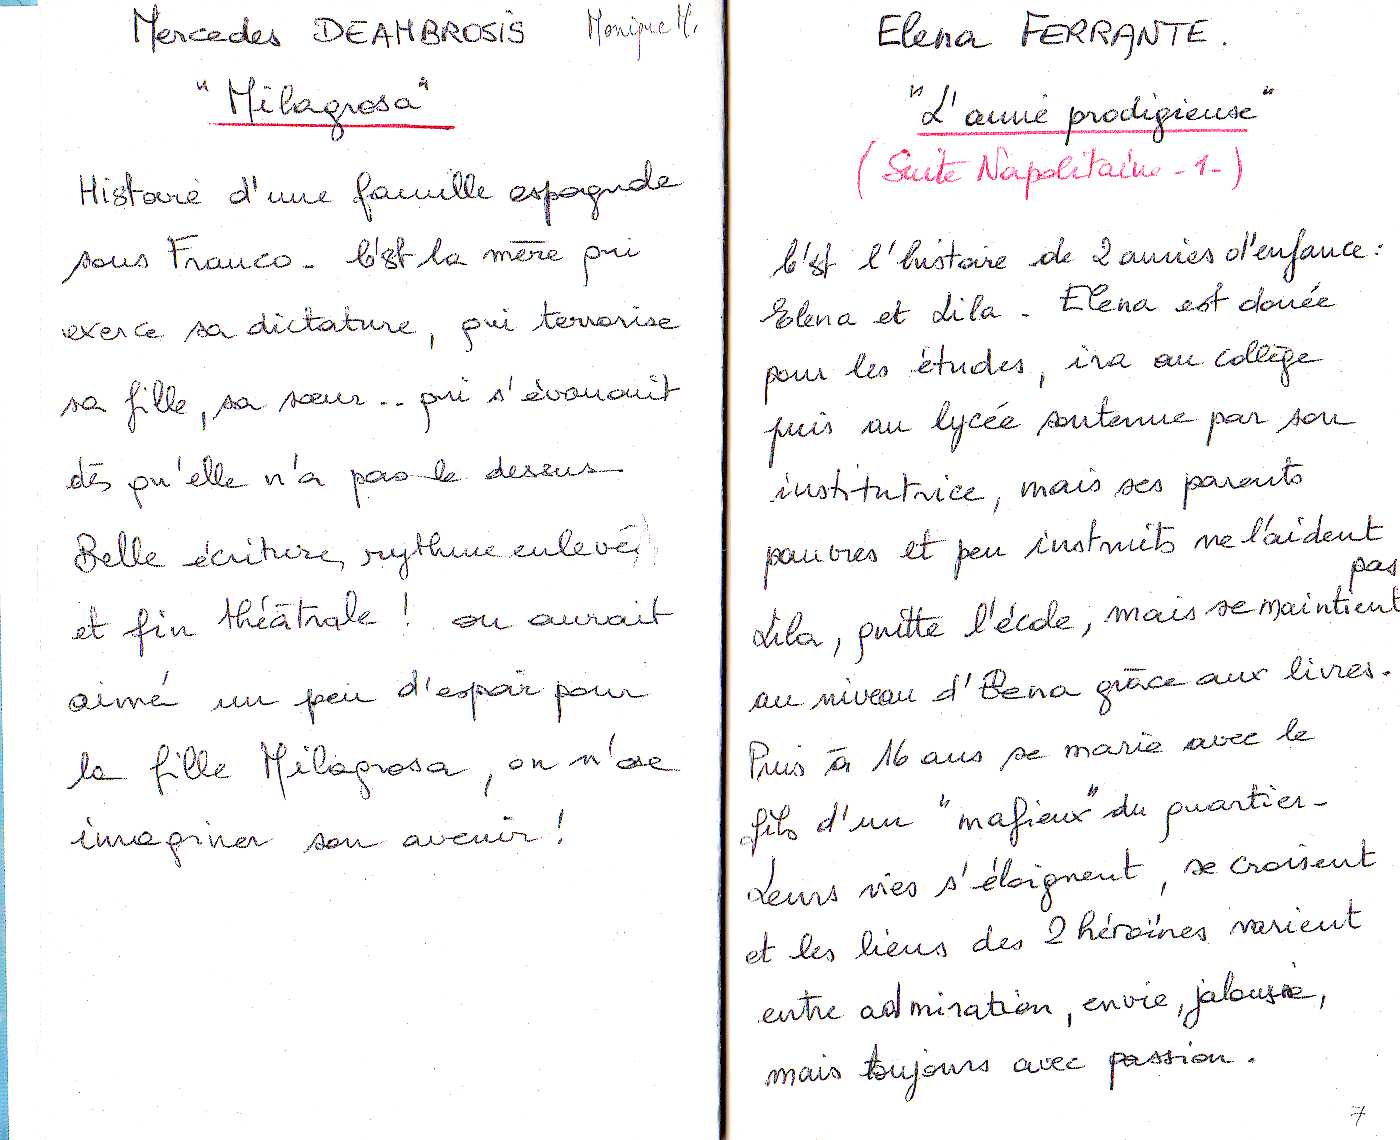 Mercedes DEAMBROSIS Monique M.
"Milagrosa"
Histoire d'une famille espagnole
sous Franco - C'est la mère qui
exerce sa dictature, qui terrorise
sa fille, sa sœur .. qui s'évanouit
dès qu'elle n'a pas le dessus
Belle écriture, rythme enlevé,
et fin théâtrale ! on aurait
aimé un peu d'espoir pour
la fille Milagrosa, on n'ose
imaginer son avenir !
Elena FERRANTE.
"L'amie prodigieuse"
(Suite Napolitaine - 1 -)
C'est l'histoire de 2 amies d'enfance :
Elena et Lila - Elena est douée
pour les études, ira au collège
puis au lycée soutenue par son
institutrice, mais ses parents
pauvres et peu instruits ne l'aident
pas
Lila, quitte l'école, mais se maintient
au niveau d'Elena grâce aux livres.
Puis à 16 ans se marie avec le
fils d'un "mafieux" du quartier -
Leurs vies s'éloignent, se croisent
et les liens des 2 héroïnes varient
entre admiration, envie, jalousie,
mais toujours avec passion.
7